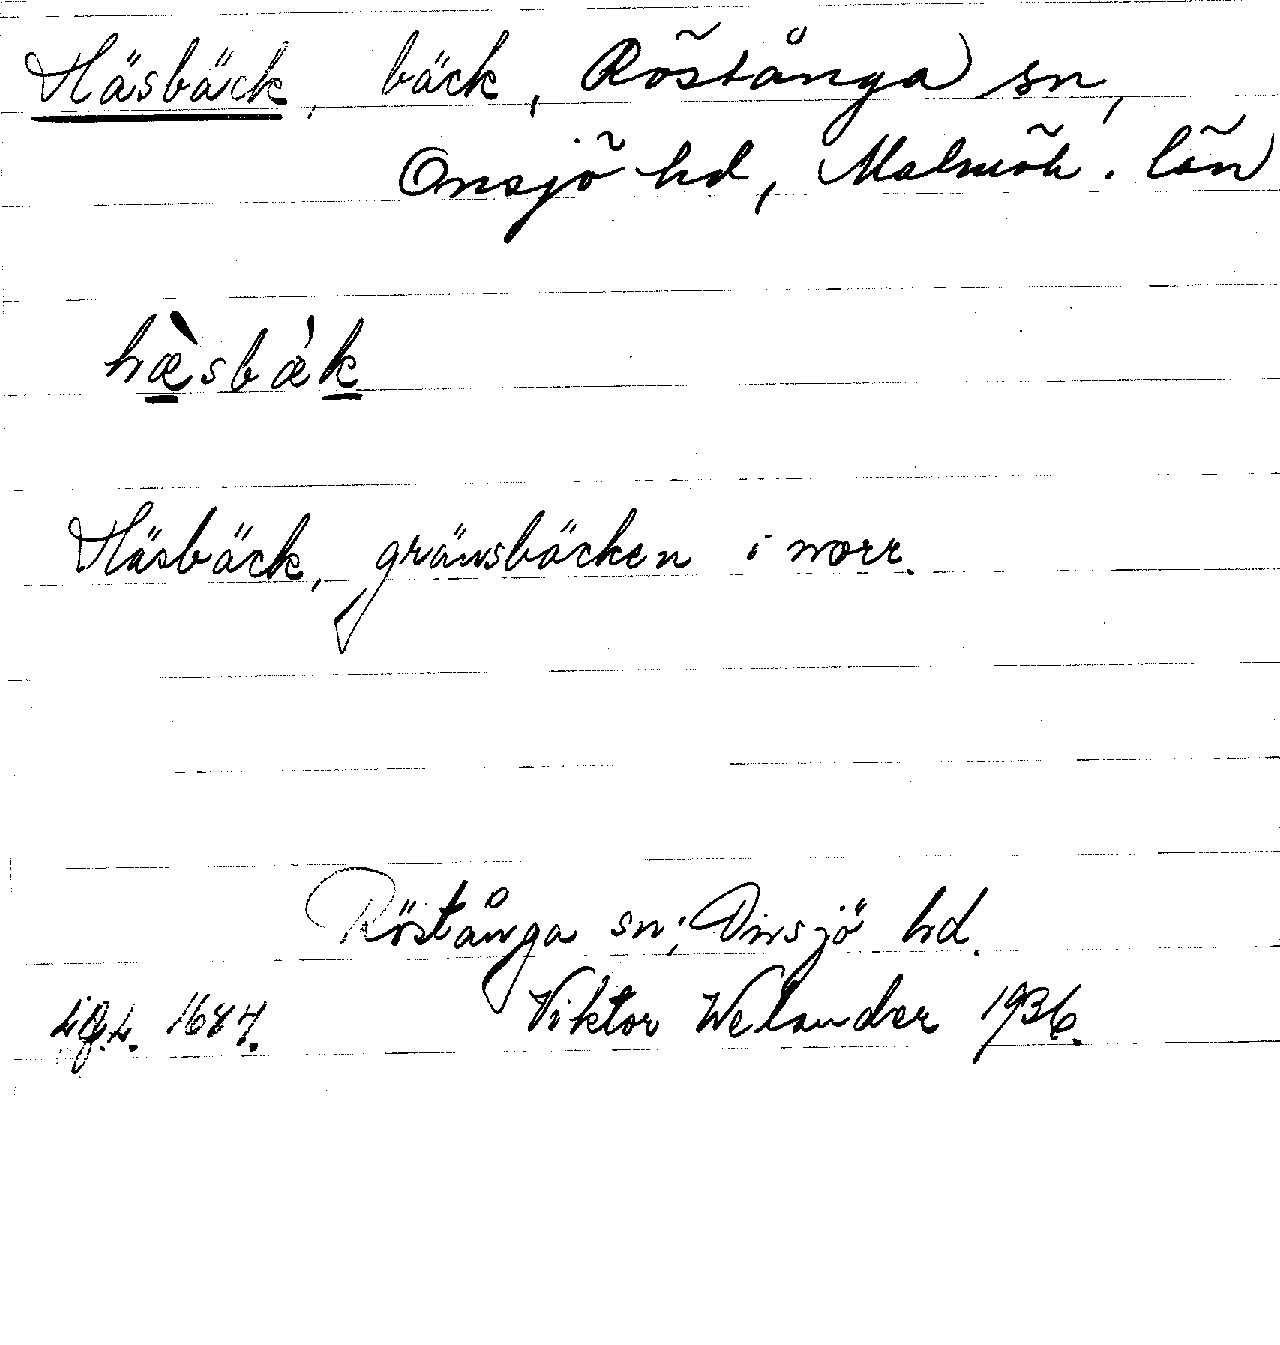 Häsbäck, bäck, Röstånga sn,
Onsjö hd, Malmöh. län
hæ̀sbǽk
Häsbäck, gränsbäcken i norr.
Röstånga sn; Onsjö hd.
1687. Viktor Welander 1936.